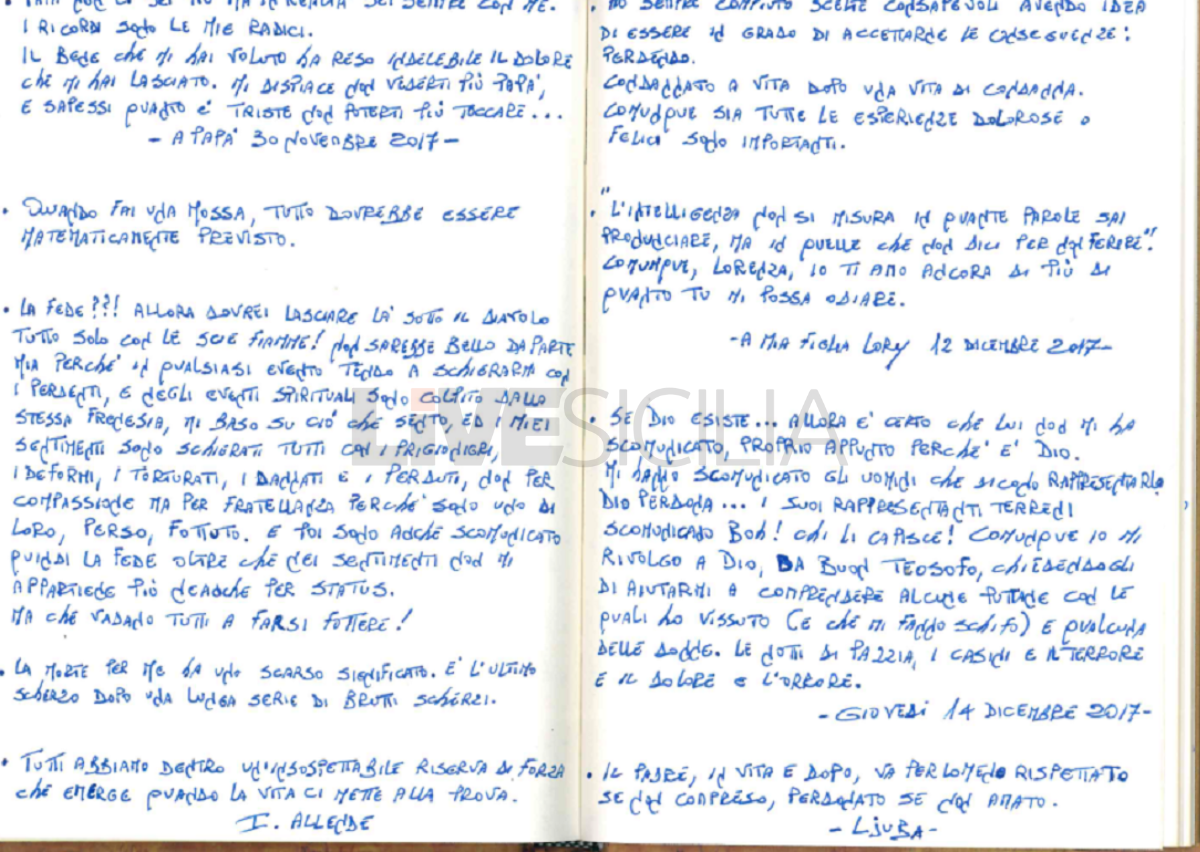 I RICORDI SONO LE MIE RADICI.
IL BENE CHE MI HAI VOLUTO HA RESO INDELEBILE IL DOLORE
CHE MI HAI LASCIATO. MI DISPIACE NON VEDERTI PIÙ PAPA',
E SAPESSI QUANTO E' TRISTE NON POTERTI PIÙ TOCCARE...
- A PAPA' 30 NOVEMBRE 2017 -
• QUANDO FAI UNA MOSSA, TUTTO DOVREBBE ESSERE
MATEMATICAMENTE PREVISTO.
• LA FEDE??! ALLORA DOVREI LASCIARE LA' SOTTO IL DIAVOLO
TUTTO SOLO CON LE SUE FIAMME! NON SAREBBE BELLO DA PARTE
MIA PERCHE' IN QUALSIASI EVENTO TENDO A SCHIERARMI CON
I PERDENTI, E NEGLI EVENTI SPIRITUALI SONO COLPITO DALLA
STESSA FRENESIA, MI BASO SU CIO' CHE SENTO, ED I MIEI
SENTIMENTI SONO SCHIERATI TUTTI CON I PRIGIONIERI,
I DEFORMI, I TORTURATI, I DANNATI E I PERDUTI, NON PER
COMPASSIONE MA PER FRATELLANZA PERCHE' SONO UNO DI
LORO, PERSO, FOTTUTO. E POI SONO ANCHE SCOMUNICATO
QUINDI LA FEDE OLTRE CHE NEI SENTIMENTI NON MI
APPARTIENE PIÙ NEANCHE PER STATUS.
MA CHE VADANO TUTTI A FARSI FOTTERE!
• LA MORTE PER ME HA UNO SCARSO SIGNIFICATO. E' L'ULTIMO
SCHERZO DOPO UNA LUNGA SERIE DI BRUTTI SCHERZI.
• TUTTI ABBIAMO DENTRO UN'INSOSPETTABILE RISERVA DI FORZA
CHE EMERGE QUANDO LA VITA CI METTE ALLA PROVA.
I. ALLENDE
• HO SEMPRE COMPIUTO SCELTE CONSAPEVOLI AVENDO IDEA
DI ESSERE IN GRADO DI ACCETTARNE LE CONSEGUENZE:
PERDENDO.
CONDANNATO A VITA DOPO UNA VITA DI CONDANNA.
COMUNQUE SIA TUTTE LE ESPERIENZE DOLOROSE O
FELICI SONO IMPORTANTI.
• "L'INTELLIGENZA NON SI MISURA IN QUANTE PAROLE SAI
PRONUNCIARE, MA IN QUELLE CHE NON DICI PER NON FERIRE".
COMUNQUE, LORENZA, IO TI AMO ANCORA DI PIÙ DI
QUANTO TU MI POSSA ODIARE.
-A MIA FIGLIA LORY 12 DICEMBRE 2017-
• SE DIO ESISTE... ALLORA E' CERTO CHE LUI NON MI HA
SCOMUNICATO, PROPRIO APPUNTO PERCHE' E' DIO.
MI HANNO SCOMUNICATO GLI UOMINI CHE DICONO RAPPRESENTARLO
DIO PERDONA... I SUOI RAPPRESENTANTI TERRENI
SCOMUNICANO BOH! CHI LI CAPISCE! COMUNQUE IO MI
RIVOLGO A DIO, DA BUON TEOSOFO, CHIEDENDOGLI
DI AIUTARMI A COMPRENDERE ALCUNE PUTTANE CON LE
QUALI HO VISSUTO (E CHE MI FANNO SCHIFO) E QUALCUNA
DELLE DONNE. LE NOTTI DI PAZZIA, I CASINI E IL TERRORE
E IL DOLORE E L'ORRORE.
-GIOVEDI 14 DICEMBRE 2017-
• IL PADRE, IN VITA E DOPO, VA PERLOMENO RISPETTATO
SE NON COMPRESO, PERDONATO SE NON AMATO.
- LJUBA -
LIVESICILIA